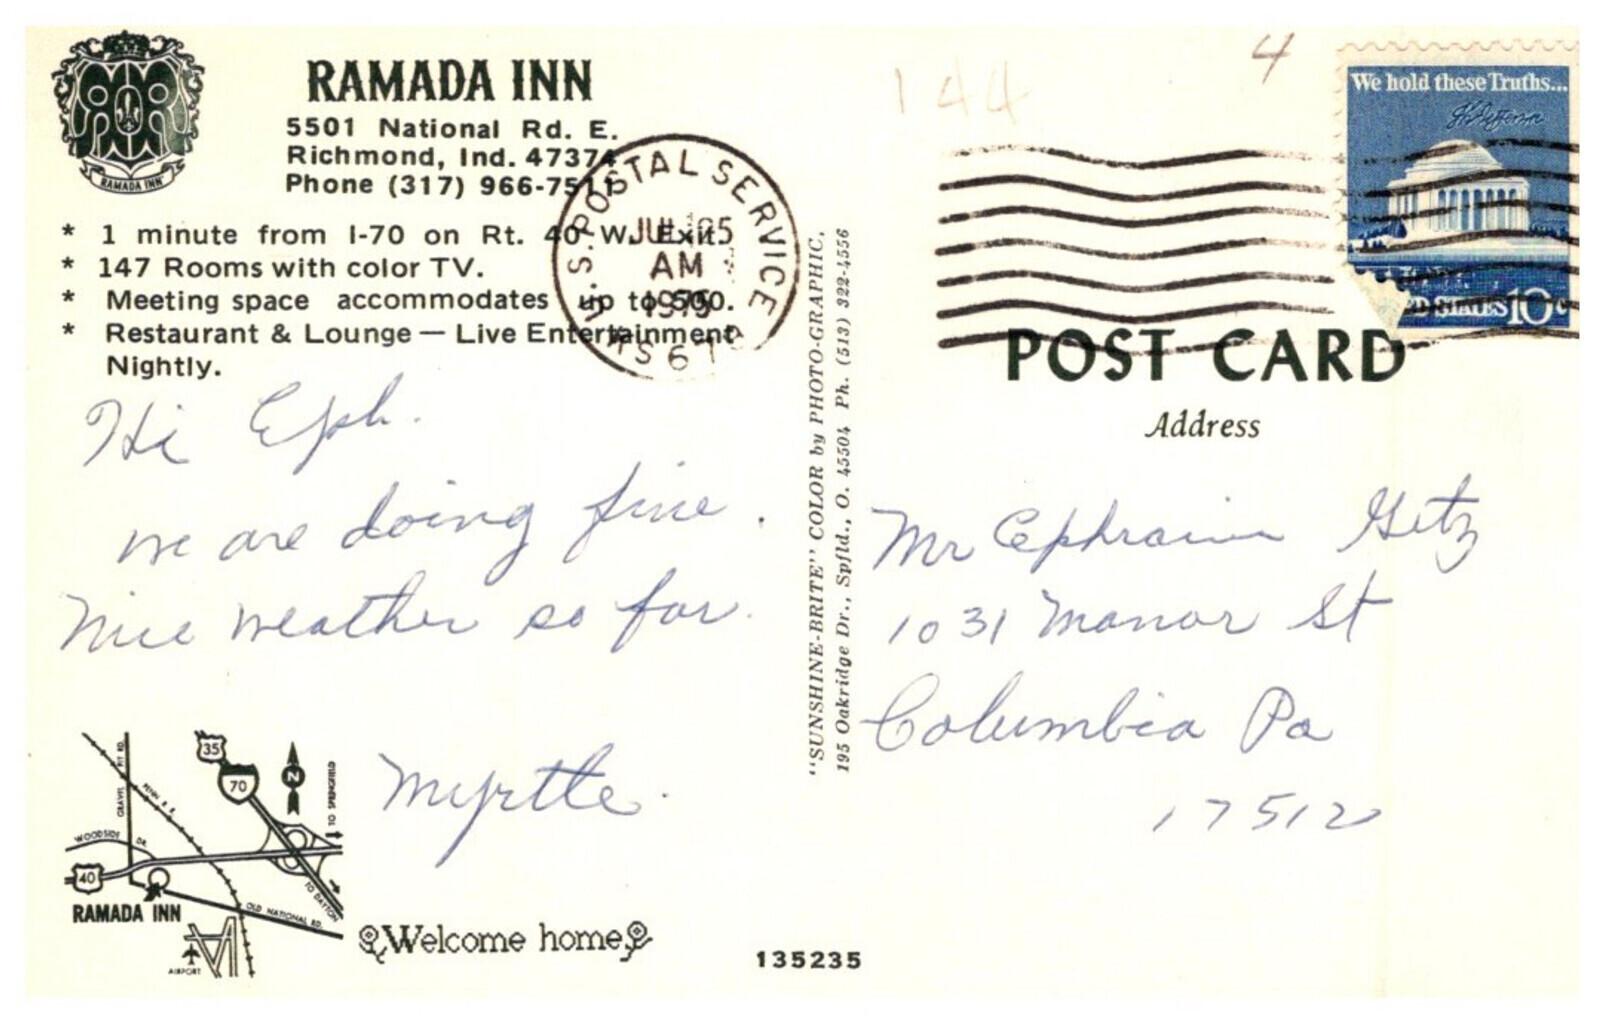 RAMADA INN
RAMADA INN
5501 National Rd. E.
Richmond, Ind. 47374
Phone (317) 966-7511
* 1 minute from I-70 on Rt. 40 W. Exit.
* 147 Rooms with color TV.
* Meeting space accommodates up to 500.
* Restaurant & Lounge — Live Entertainment
Nightly.
U.S. POSTAL SERVICE
JUL
AM
1975
Hi Eph.
we are doing fine.
Nice weather so far.
Myrtle.
35
70
N
TO SPRINGFIELD
GRAVEL PIT RD.
PENN R.R.
WOODSIDE DR.
40
TO DAYTON
RAMADA INN
OLD NATIONAL RD.
AIRPORT
Welcome home
135235
"SUNSHINE-BRITE" COLOR by PHOTO-GRAPHIC,
195 Oakridge Dr., Spfld., O. 45504 Ph. (513) 322-4556
144
4
We hold these Truths...
Th Jefferson
10c
POST CARD
Address
Mr Ephraim Getz
1031 Manor St
Columbia Pa
17512